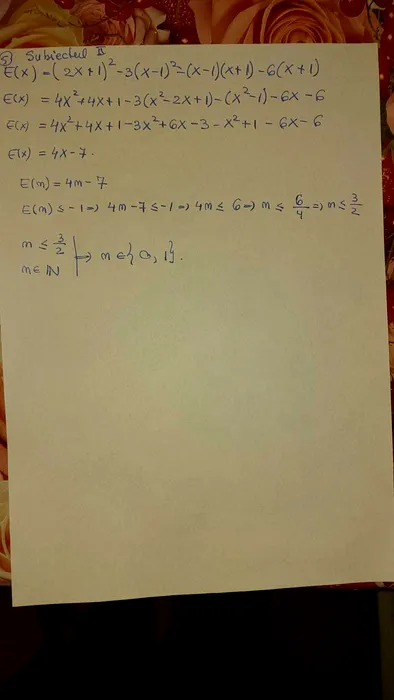 5) Subiectul II
E(x) = (2x+1)² -3(x-1)² -(x-1)(x+1) -6(x+1)
E(x) = 4x²+4x+1-3(x²-2x+1)-(x²-1)-6x-6
E(x) = 4x²+4x+1-3x²+6x-3-x²+1-6x-6
E(x) = 4x-7.
E(n) = 4n-7
E(n) ≤ -1 => 4n-7 ≤ -1 => 4n ≤ 6 => n ≤ 6/4 => n ≤ 3/2
n ≤ 3/2
n ∈ ℕ | => n ∈ {0, 1}.